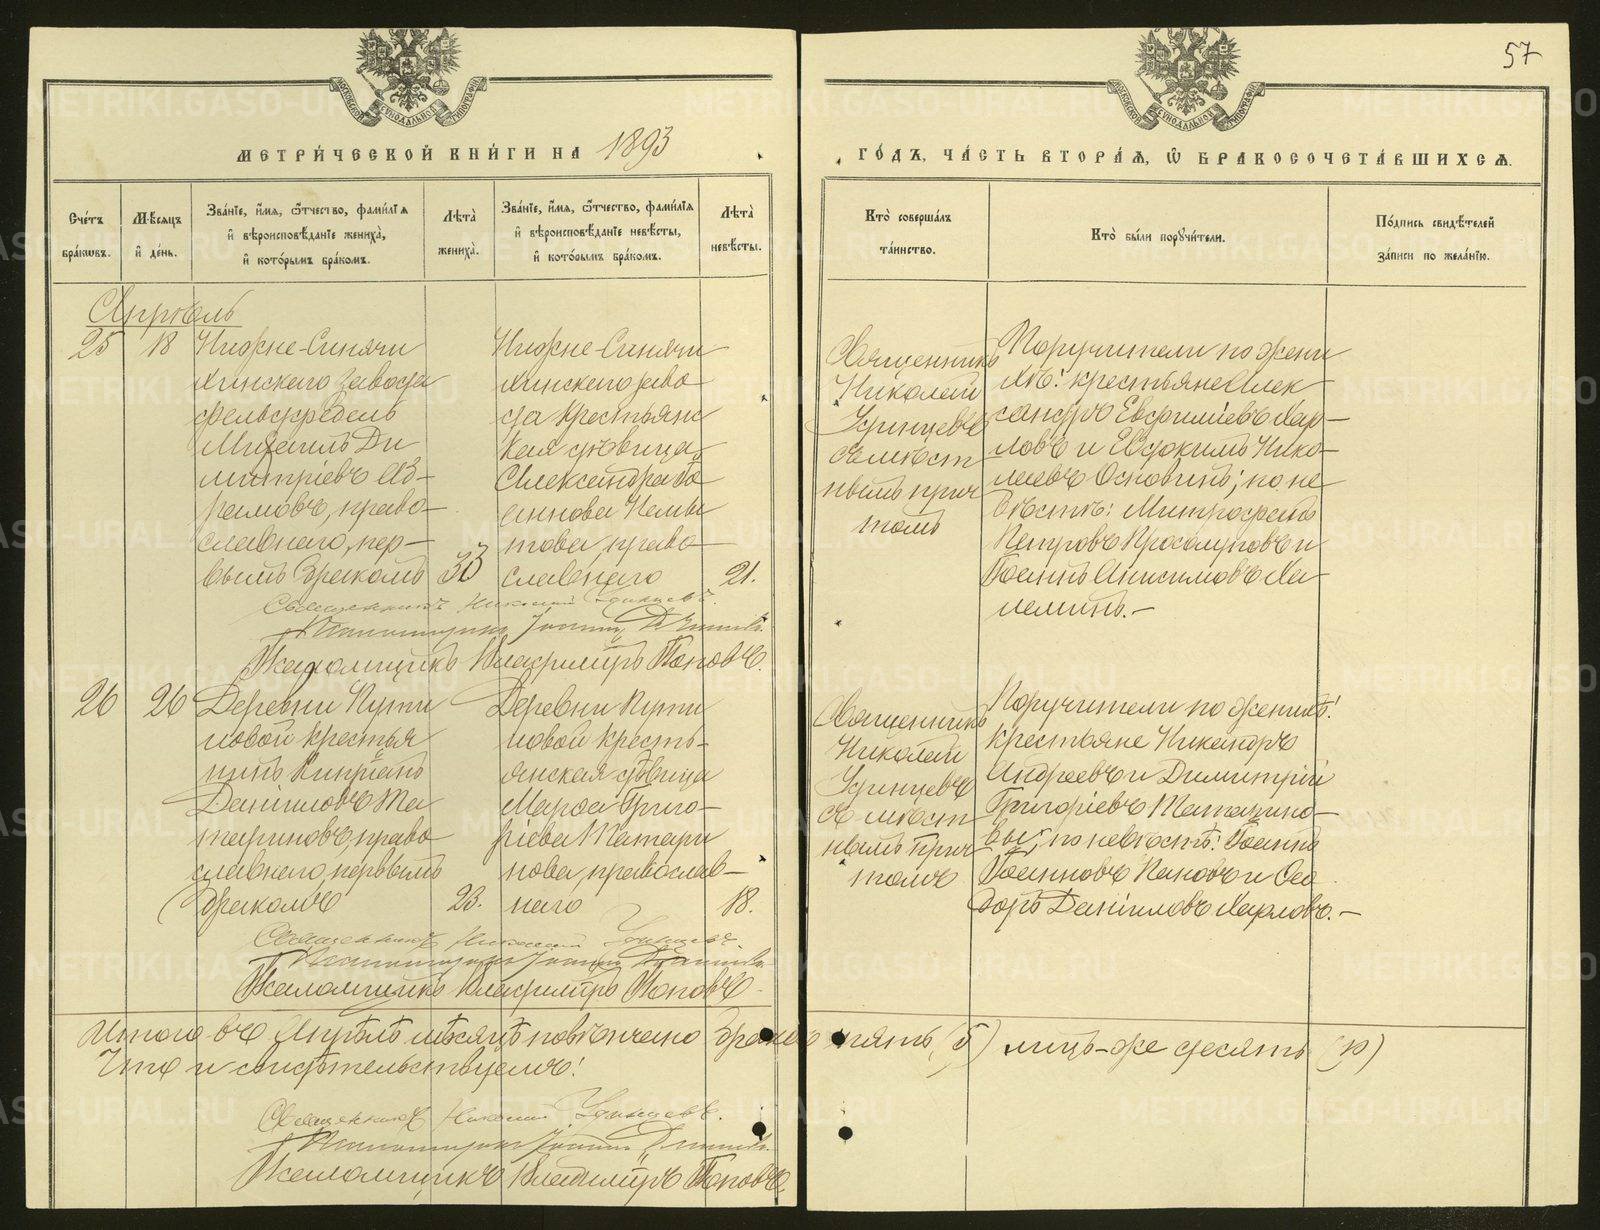 57
МЕТРИ́ЧЕСКОЙ КНИ́ГИ НА 1893
ГО́ДЪ, ЧА́СТЬ ВТОРА́Я, Ѽ БРАКОСОЧЕТА́ВШИХСЯ.
Сче́тъ бра́кѡвъ.
Мѣ́сяцъ и҆ де́нь.
Зва́нїе, и҆́мя, ѻ҆́тчество, фамилїя
и҆ вѣроисповѣ́данїе жениха̀,
и҆ кото́рымъ бра́комъ.
Лѣта̀ жениха̀.
Зва́нїе, и҆́мя, ѻ҆́тчество, фамилїя
и҆ вѣроисповѣ́данїе невѣ́сты,
и҆ кото́рымъ бра́комъ.
Лѣта̀ невѣ́сты.
Кто̀ соверша́лъ та́инство.
Кто̀ бы́ли пору́чители.
По́дпись свидѣ́телей за́писи по жела́нїю.
Апрѣль
25
18
Нижне-Синячи
хинскаго завода
фельдфебель
Михаилъ Ди
митріевъ Аб-
рамовъ, право-
славнаго, пер-
вымъ бракомъ
33
Нижне-Синячи
хинскаго заво-
да крестьянс
кая дѣвица
Александра Іо
аннова
това, право-
славнаго
21.
Священникъ
Николай
Удинцевъ
съ мѣст
нымъ прич
томъ
Поручители по жени
хѣ: крестьяне Алек
сандръ Евфиміевъ Хар-
ловъ и Евдокимъ Нико-
лаевъ Основинъ; по не
вѣстѣ: Митрофанъ
Петровъ и
Іоаннъ Анисимовъ Ха-
ламинъ.-
Священникъ Николай Удинцевъ.
Іоаннъ
Псаломщикъ Владиміръ Поповъ.
26
26
Деревни Пути
ловой крестья
нинъ Кипріанъ
Даниіловъ Та
тариновъ, право
славнаго, первымъ
бракомъ
23.
Деревни Пути
ловой кресть-
янская дѣвица
Марѳа Григо-
ріева Татари
нова, православ-
наго
18.
Священникъ
Николай
Удинцевъ
съ мѣст
нымъ прич
томъ
Поручители по женихѣ:
крестьяне Никандръ
Андреевъ и Димитрій
Григоріевъ Татарино-
вы; по невѣстѣ: Іоаннъ
Іоанновъ Пановъ и Ѳео
доръ Даніиловъ Харловъ.-
Священникъ Николай Удинцевъ.
Іоаннъ
Псаломщикъ Владиміръ Поповъ.
Итого въ Апрѣлѣ мѣсяцѣ повѣнчано браковъ пять (5) лицъ-же десять (10)
Что и свидѣтельствуемъ:
Священникъ Николай Удинцевъ.
Іоаннъ
Псаломщикъ Владиміръ Поповъ.